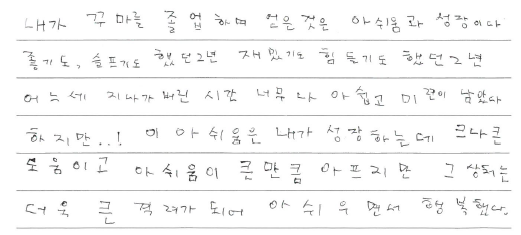 내가 꾸마를 졸업하며 얻은 것은 아쉬움과 성장이다
좋기도, 슬프기도 했던 2년 재밌기도 힘들기도 했던 2년
어느세 지나가 버린 시간 너무나 아쉽고 미련이 남았다
하지만..! 이 아쉬움은 내가 성장하는데 크나큰
도움이고 아쉬움이 큰만큼 아프지만 그 상처는
더욱 큰 격려가 되어 아쉬우면서 행복했다.